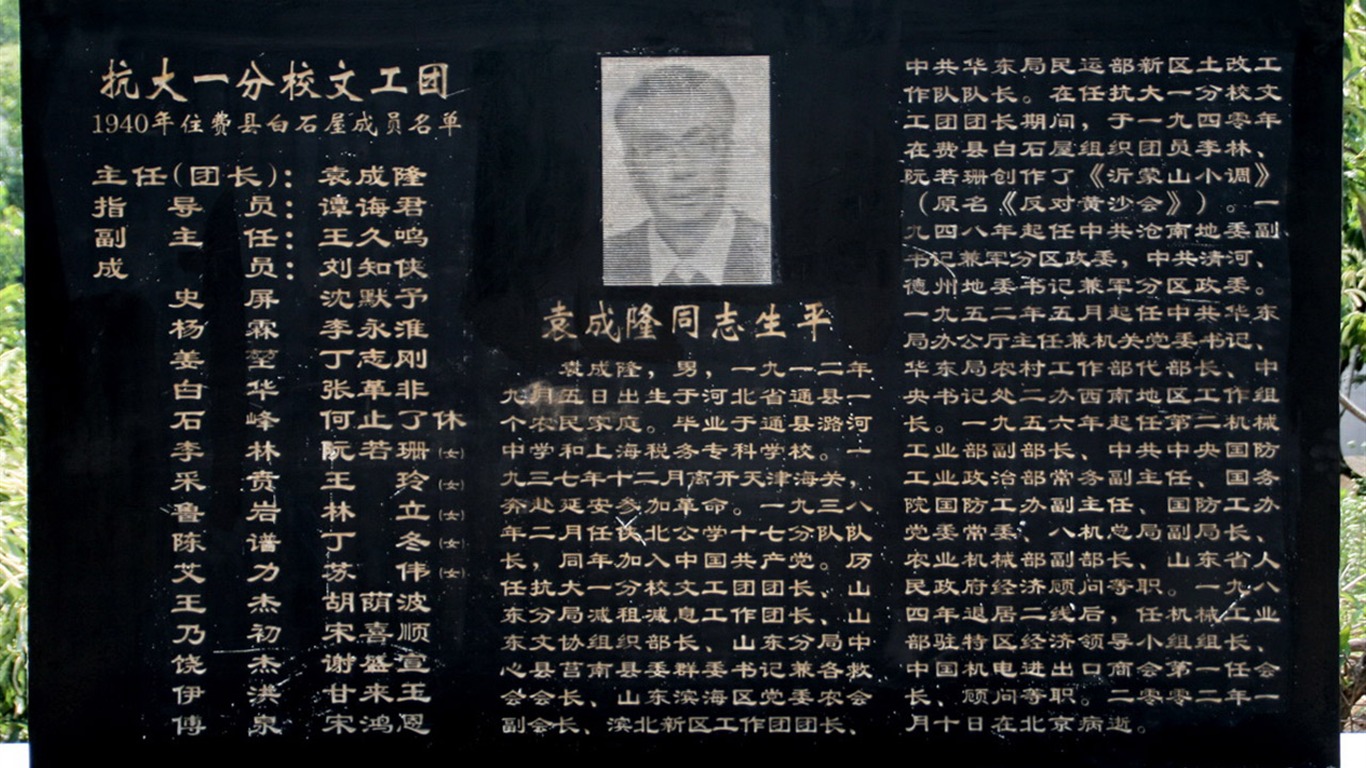 抗大一分校文工团
1940年住费县白石屋成员名单
主任(团长): 袁成隆
指导员: 谭诲君
副主任: 王久鸣
成员: 刘知侠
史屏 沈默予
杨霖 李永淮
姜堃 丁志刚
白华 张革非
石峰 何止了休
李林 阮若珊(女)
采贵 王玲(女)
鲁岩 林立(女)
陈谱 丁冬(女)
艾力 苏伟(女)
王杰 胡荫波
乃初 宋喜顺
饶杰 谢盛宣
伊洪 甘来王
傅泉 宋鸿恩
袁成隆同志生平
袁成隆，男，一九一二年
九月五日出生于河北省通县一
个农民家庭。毕业于通县潞河
中学和上海税务专科学校。一
九三七年十二月离开天津海关，
奔赴延安参加革命。一九三八
年二月任陕北公学十七分队队
长，同年加入中国共产党。历
任抗大一分校文工团团长、山
东分局减租减息工作团团长、山
东文协组织部长、山东分局中
心县莒南县委群委书记兼各救
会会长、山东滨海区党委农会
副会长、滨北新区工作团团长、
中共华东局民运部新区土改工
作队队长。在任抗大一分校文
工团团长期间，于一九四零年
在费县白石屋组织团员李林、
阮若珊创作了《沂蒙山小调》
（原名《反对黄沙会》）。一
九四八年起任中共沧南地委副
书记兼军分区政委，中共清河、
德州地委书记兼军分区政委。
一九五二年五月起任中共华东
局办公厅主任兼机关党委书记、
华东局农村工作部代部长、中
央书记处二办西南地区工作组
长。一九五六年起任第二机械
工业部副部长、中共中央国防
工业政治部常务副主任、国务
院国防工办副主任、国防工办
党委常委、八机总局副局长、
农业机械部副部长、山东省人
民政府经济顾问等职。一九八
四年退居二线后，任机械工业
部驻特区经济领导小组组长、
中国机电进出口商会第一任会
长、顾问等职。二零零二年一
月十日在北京病逝。